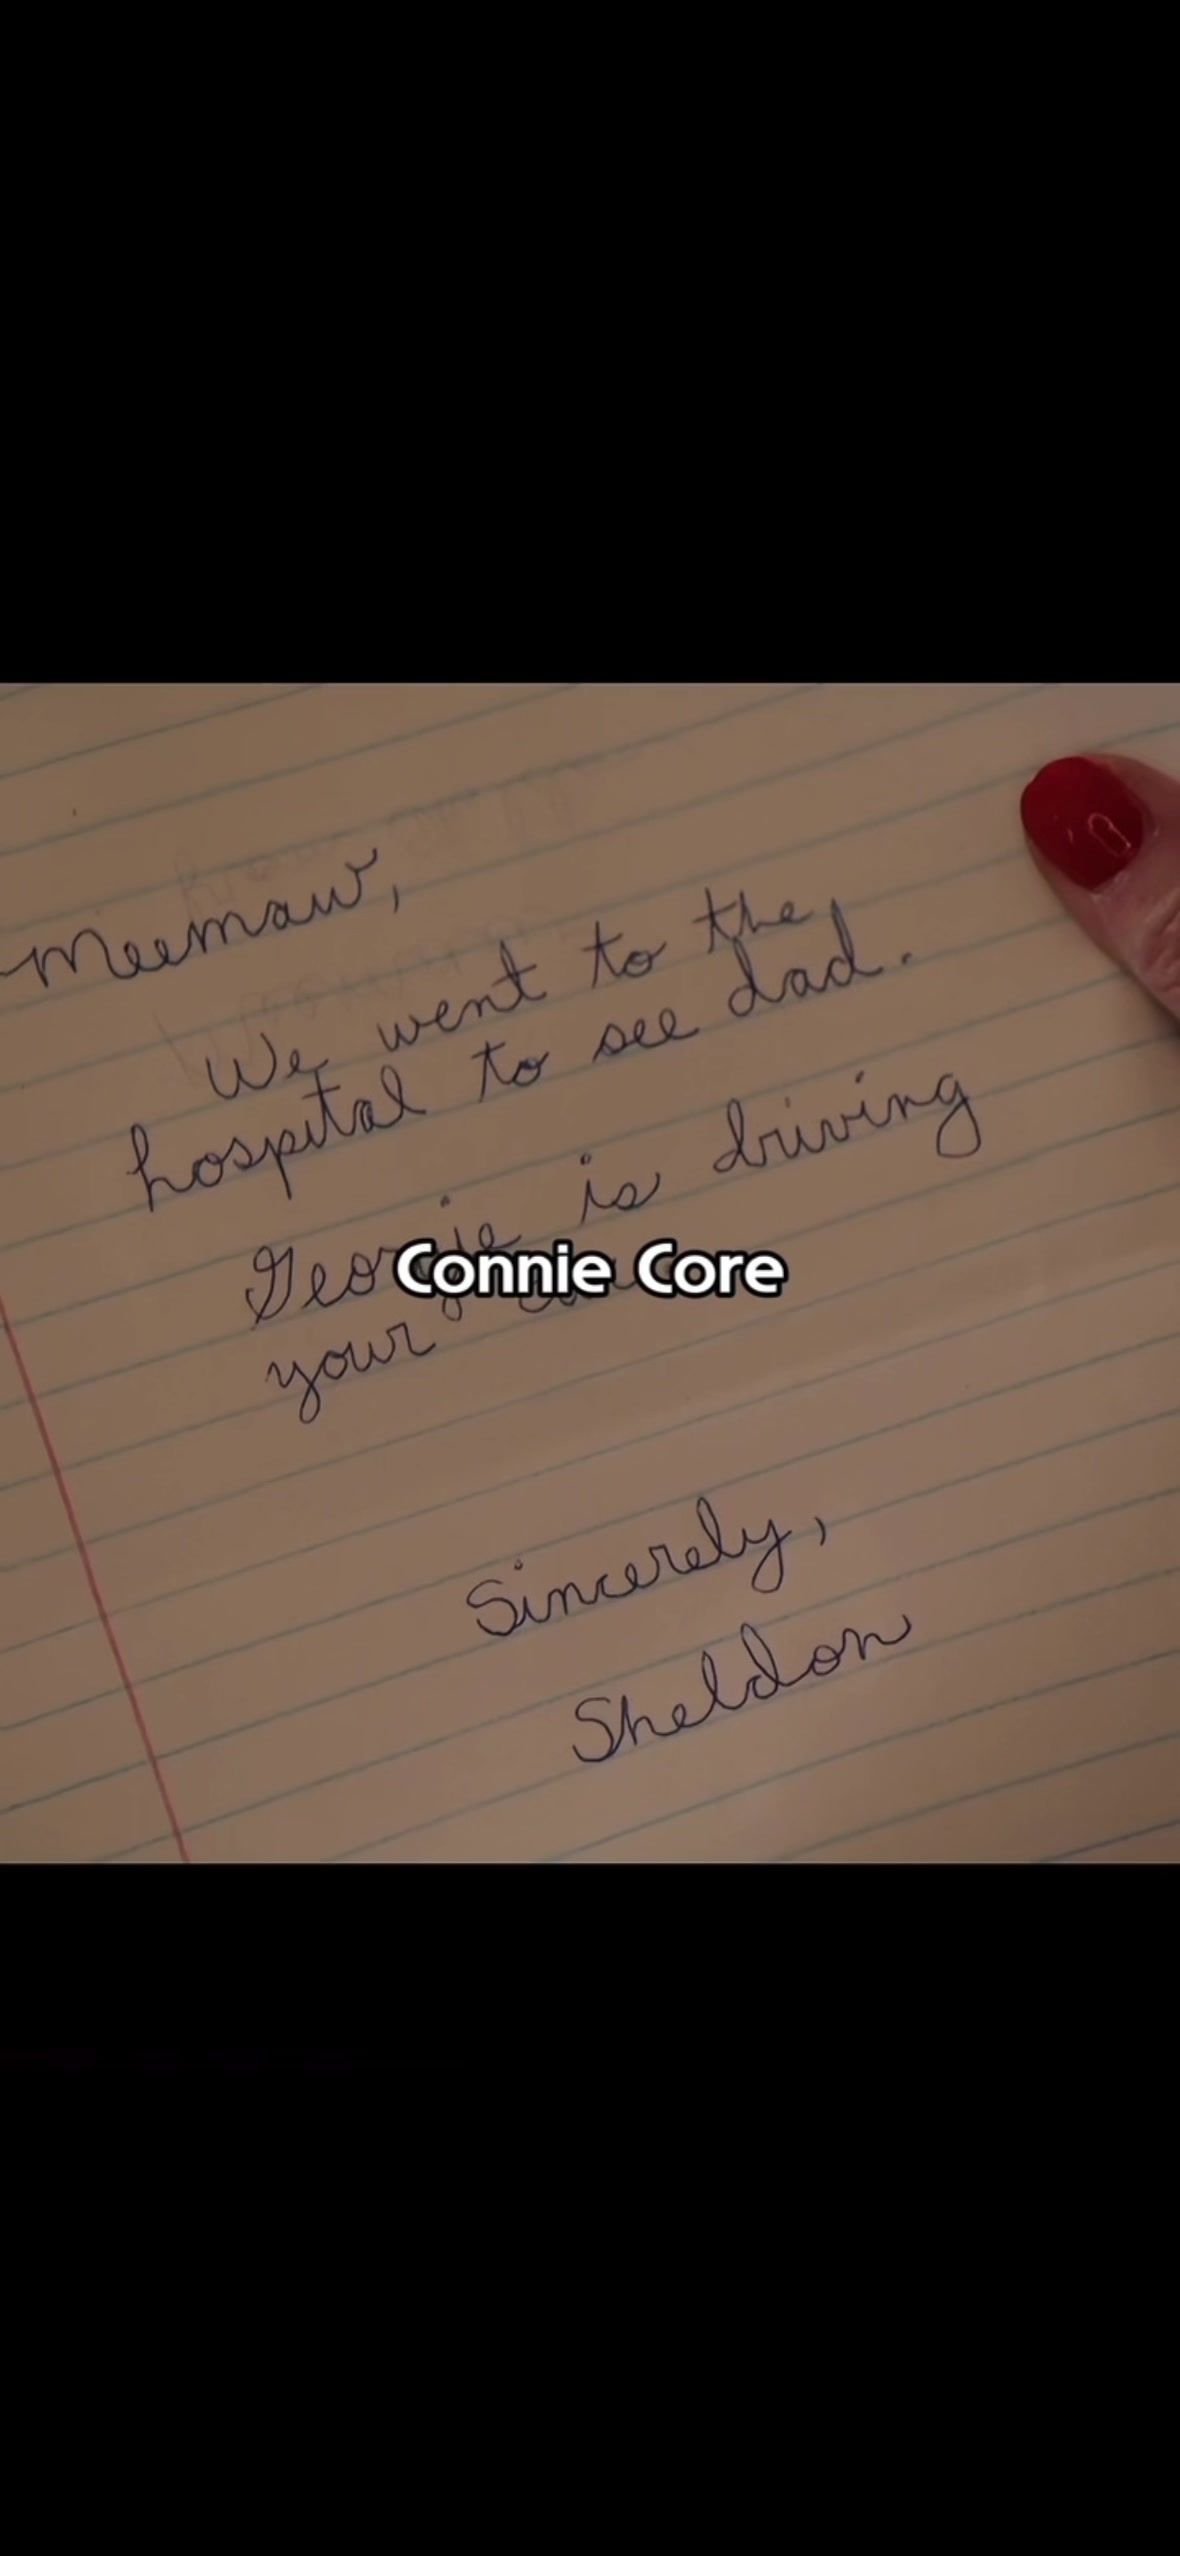 Meemaw,
We went to the
hospital to see dad.
Georgie is driving
Connie Core
your car
Sincerely,
Sheldon